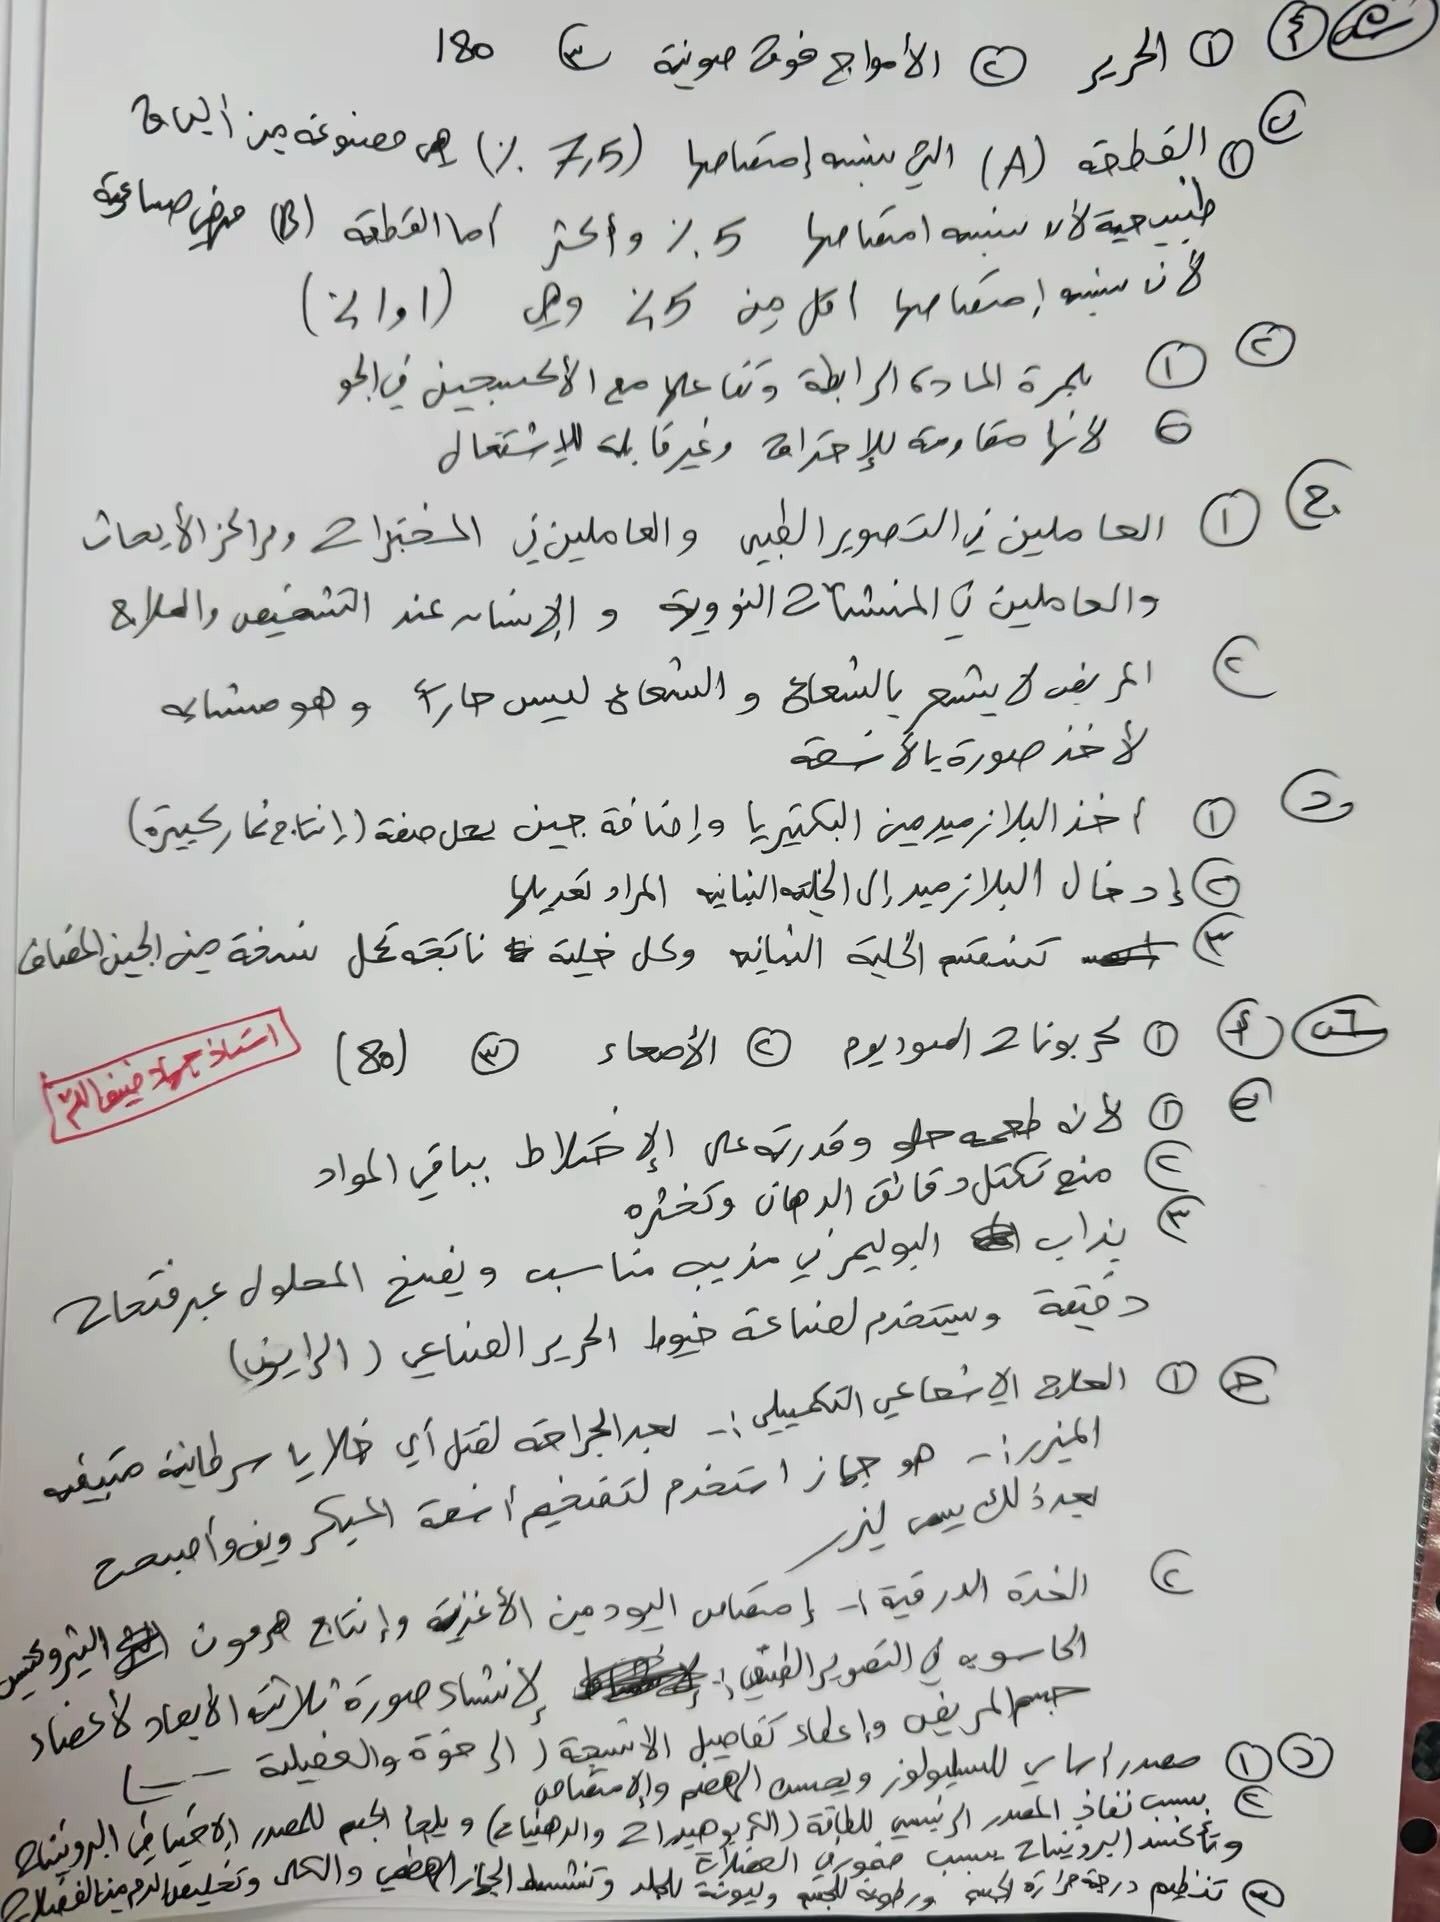 س٥ أ ① الحرير ② الأمواج فوق صوتية ③ 180
ب ① القطعة (A) التي نسبه إمتصاصها (7,5 ٪) هي مصنوعة من الياف
طبيعية لأن نسبه امتصاصها 5 ٪ وأكثر أما القطعة (B) فهي صناعية
لأن نسبه إمتصاصها اقل من 5 ٪ وهي (١ و ا ٪)
② ① بلمرة المادة الرابطة وتفاعلها مع الأكسجين في الجو
② لأنها مقاومة للإحتراق وغير قابله للإشتعال
ج ① العاملين في التصوير الطبي والعاملين في المختبرات ومراكز الأبحاث
والعاملين في المنشآت النووية و الإنسان عند التشخيص والعلاج
② المريض لا يشعر بالشعاع و الشعاع ليس حاراً و هو مشابه
لأخذ صورة بالأشعة
د ① أخذ البلازميد من البكتيريا وإضافة جين يحمل صفة (إنتاج ثمار كبيرة)
② إدخال البلازميد إلى الخلية النباتيه المراد تعديلها
③ تنقسم الخلية النباتيه وكل خلية ناتجة تحمل نسخة من الجين المضاف
س٦ أ ① كربونات الصوديوم ② الأمعاء ③ (80)
استاذ جهاد ضيف الله
ب ① لأنه طعمه حلو وقدرته على الإختلاط بباقي المواد
② منع تكتل دقائق الدهان وتخثره
③ يذاب البوليمر في مذيب مناسب ويضخ المحلول عبر فتحات
دقيقة ويستخدم لصناعة خيوط الحرير الصناعي (الرايون)
ج ① العلاج الإشعاعي التكميلي :- بعد الجراحة لقتل أي خلايا سرطانية متبقيه
الميزر :- هو جهاز استخدم لتضخيم أشعة الميكرويف وأصبح
بعد ذلك يسمى ليزر
② الغدة الدرقية :- إمتصاص اليود من الأغذية وإنتاج هرمون الثيروكسين
الحاسوب في التصوير الطبقي :- لإنشاء صورة ثلاثية الأبعاد لأعضاء
جسم المريض وإعطاء تفاصيل الانسجة (الرخوة والعضلية - - )
د ① مصدر أساسي للسليلوز ويحسن الهضم والإمتصاص
② بسبب نفاذ المصدر الرئيسي للطاقة (الكربوهيدرات والدهنيات) و يلجأ الجسم للمصدر الإحتياطي البروتينات
وتأكسد البروتينات يسبب ضمور في العضلات
③ تنظيم درجة حرارة الجسم ورطوبة للجسم وليونة للجلد وتنشيط الجهاز الهضمي والكلى وتخليص الدم من الفضلات